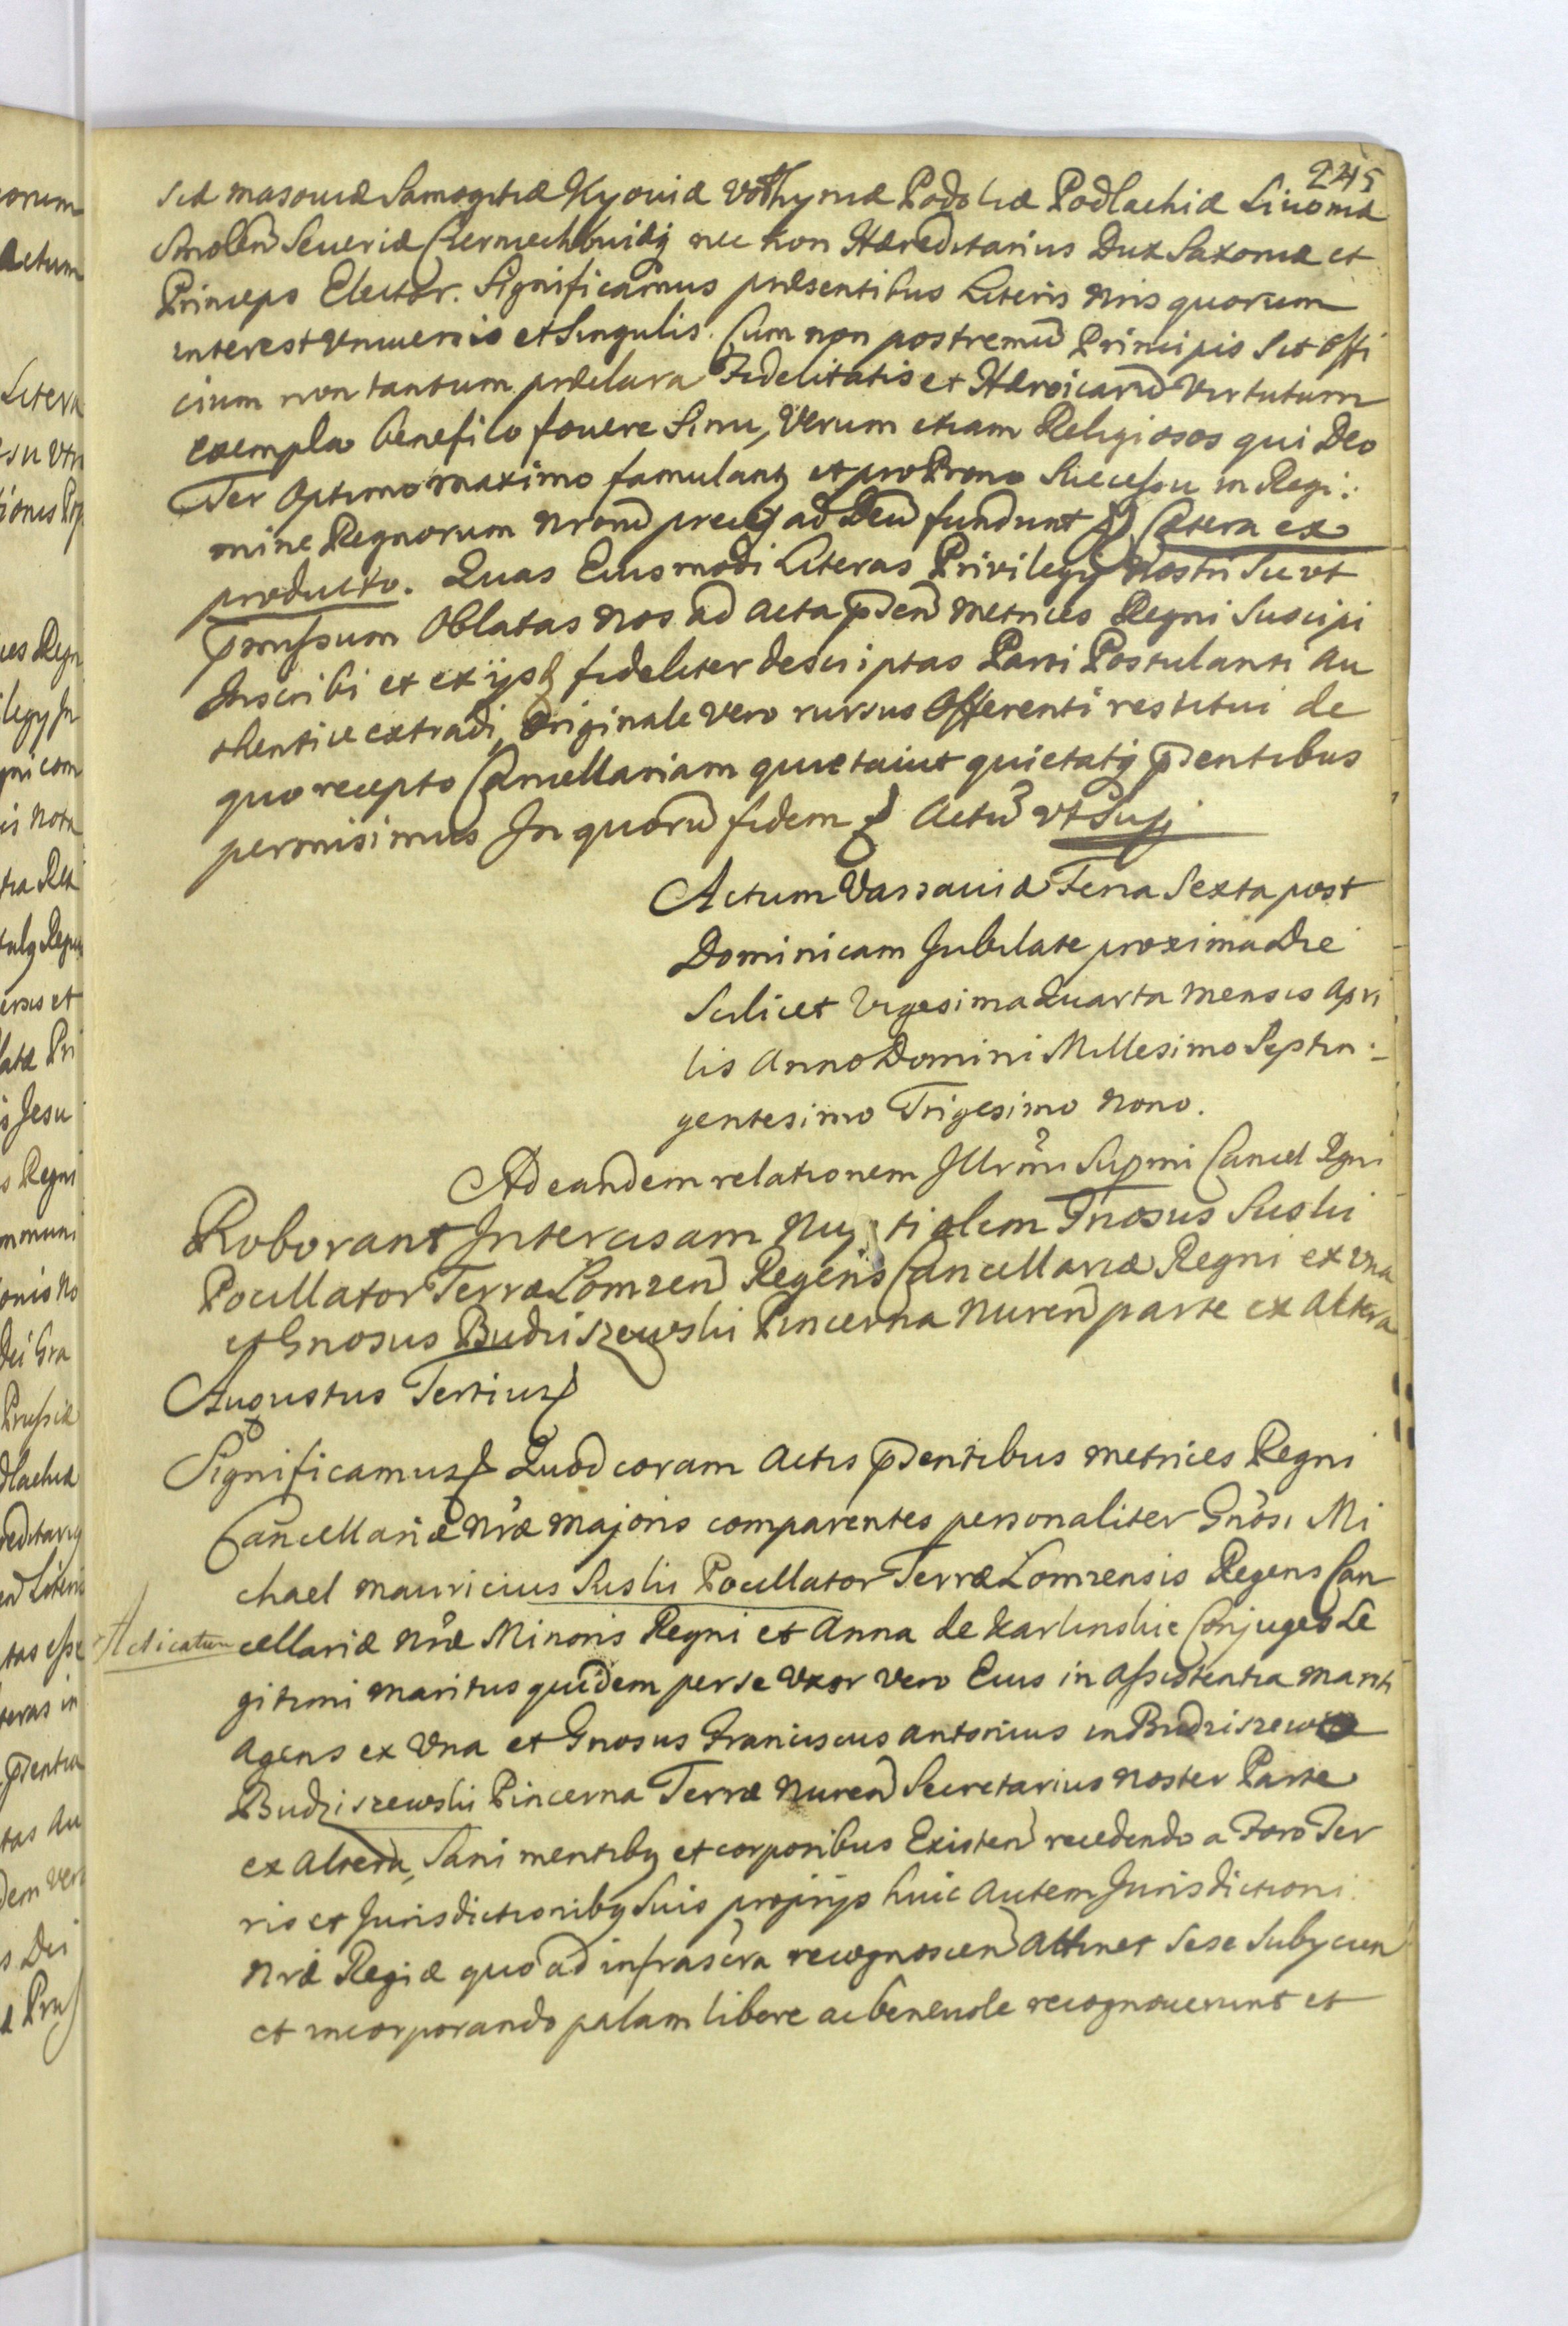 245
siæ Masoviæ Samogitiæ Kyoviæ Volhyniæ Podoliæ Podlachiæ Livoniæ
Smolen Severiæ Czerniechoviæq nec non Hæreditarius Dux Saxoniæ et
Princeps Elector. Significamus præsentibus Literis Nris quorum
interest Universis et Singulis. Cum non postremu Principis Sit Offi
cium non tantum præclara Fidelitatis et Heroicaru Virtutum
exempla benefico fovere Sinu, Verum etiam Religiosos qui Deo
Ter Optimo Maximo famulantq et pro Prono Successu in Regi:
mine Regnorum Nroru preces ad Deu fundunt Cætera ex
producto. Quas Eiusmodi Literas Privilegy Nostri Sic ut
præmissum Oblatas Nos ad Acta pden Metrices Regni Suscipi
Inscribi et ex ijsd fideliter descriptas Parti Postulanti Au
thentice extradi, Originale vero rursus Offerenti restitui de
quo recepto Cancellariam quietavit quietatq pdentibus
permisimus In quoru fidem Actu ut Sup
Actum Varsaviæ Feria Sexta post
Dominicam Jubilate proxima Die
Scilicet Vigesima Quarta Mensis Apri
lis Anno Domini Millesimo Septin:
gentesimo Trigesimo Nono.
Ad eandem relationem Illrmi Supmi Cancel Rgni
Roborant Intercisam Nuptialem Gnosus Suski
Pocillator Terræ Lomzen Regens Cancellariæ Regni ex una
et Gnosus Budziszewski Pincerna Nuren parte ex Altera
Augustus Tertius
Significamus Quod coram Actis pdentibus Metrices Regni
Cancellariæ Nræ Majoris comparentes personaliter Gnosi Mi
chael Mauricius Suski Pocillator Terræ Lomzensis Regens Can
Acticatum cellariæ Nræ Minoris Regni et Anna de Karlinskie Conjuges Le
gitimi Maritus quidem per se Uxor vero Eius in Assistentia Mariti
Agens ex Una et Gnosus Franciscus Antonius in Budziszewo
Budziszewski Pincerna Terræ Nuren Secretarius Noster Parte
ex Altera, Sani mentibq et corporibus Existen recedendo a Foro Ter
ris et Jurisdictionibq Suis proprijs huic Autem Jurisdictioni
Nræ Regiæ quo ad infrascra recognoscen Attinet Sese Subijcien
et incorporando palam libere ac benevole recognoverunt et